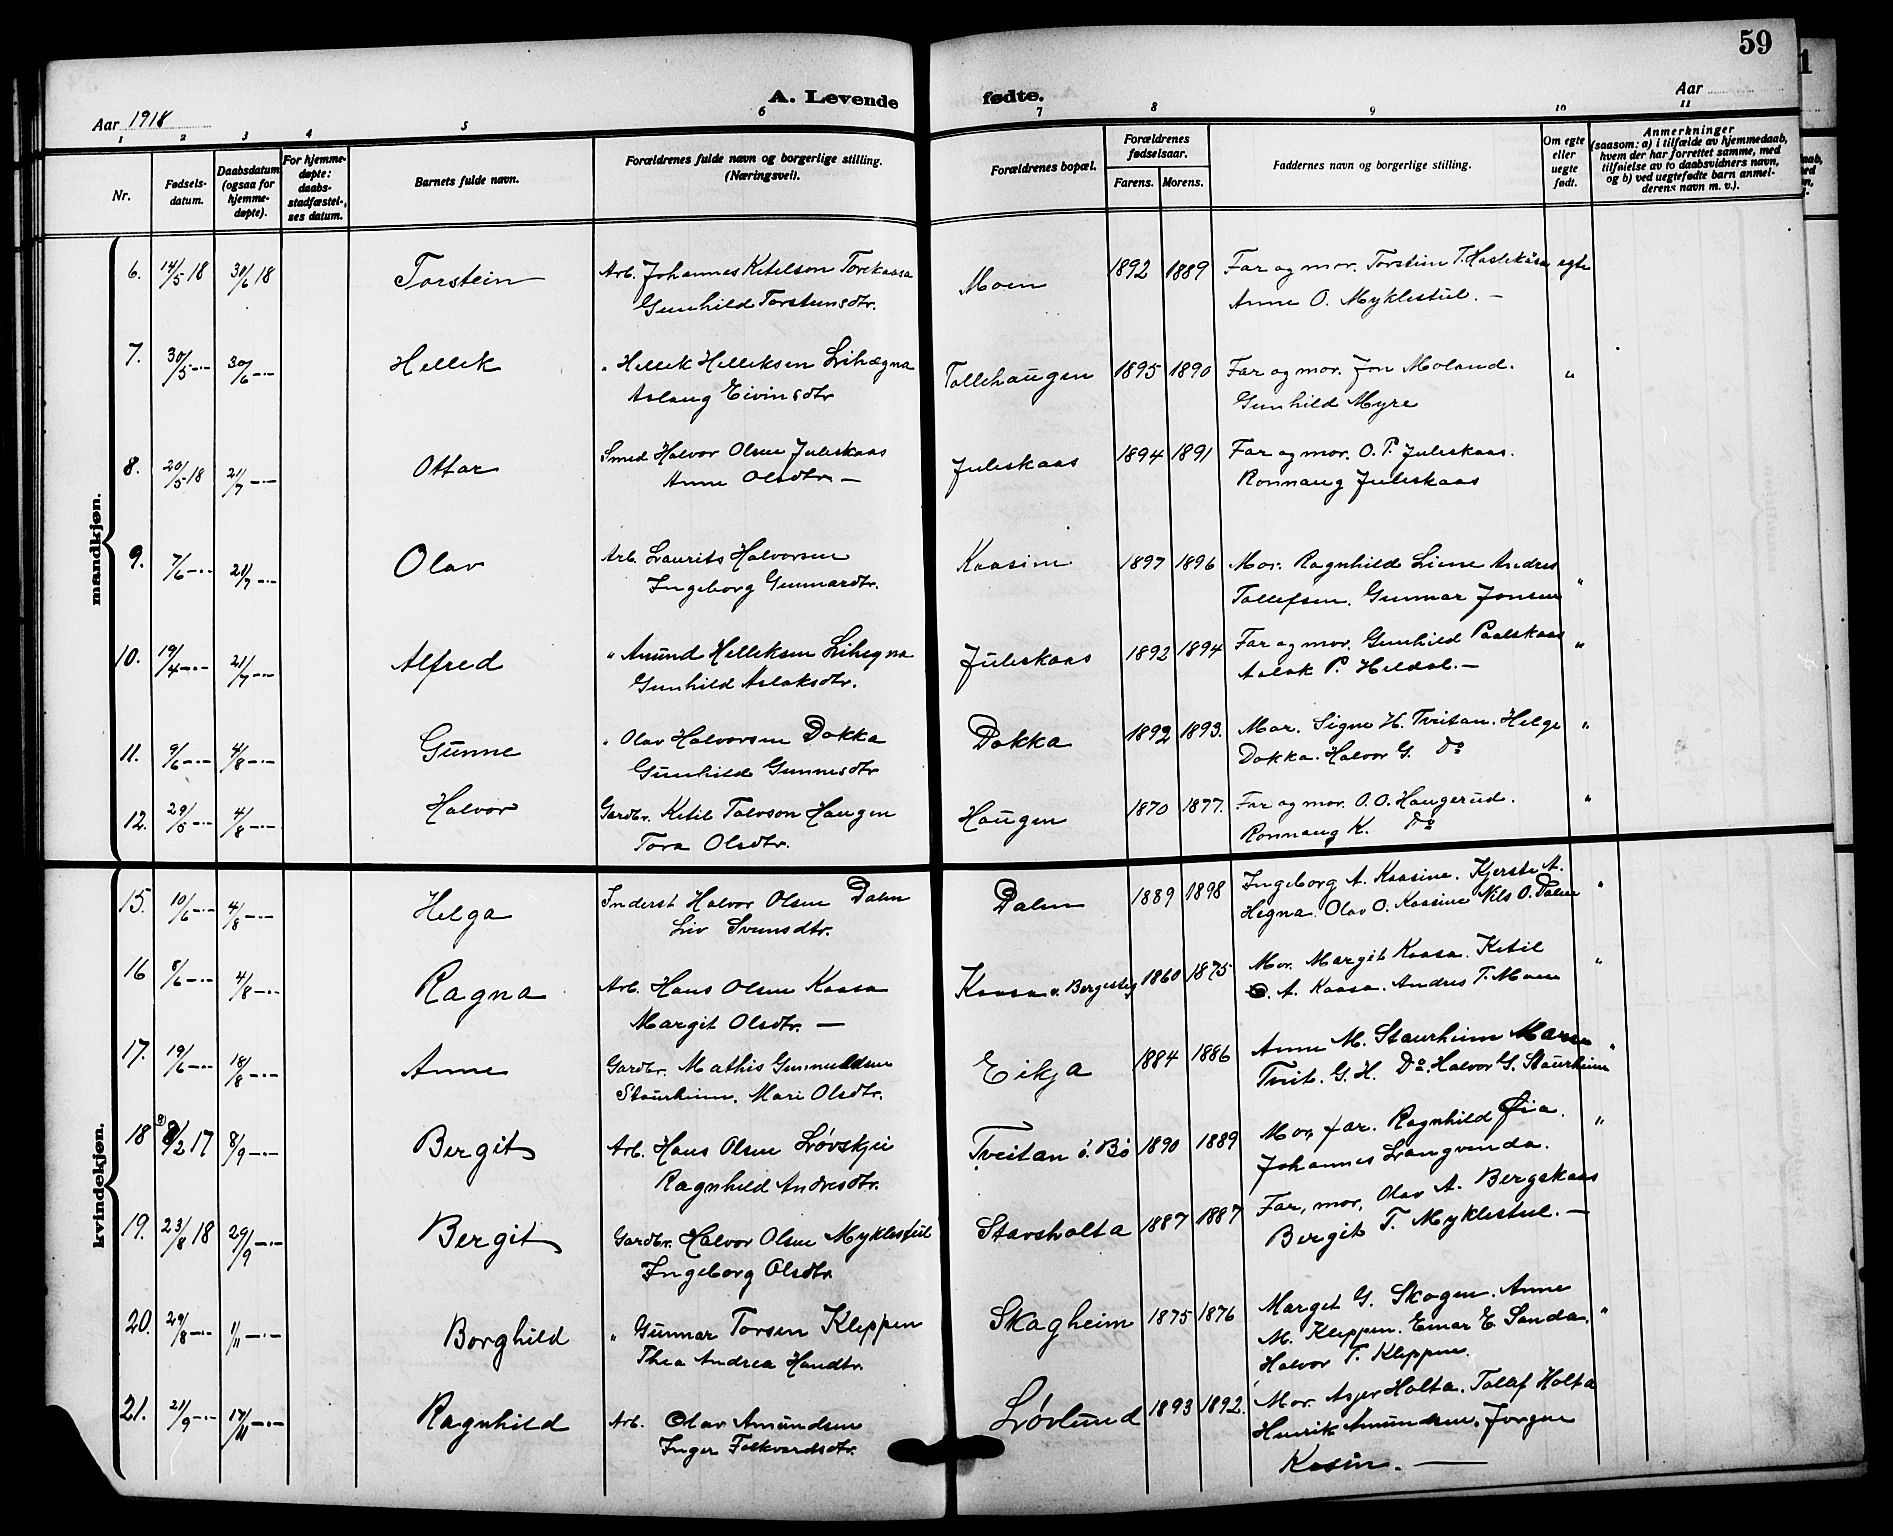 59
A. Levende fødte.
Aar 1918
Aar
1 2 3 4 5 6 7 8 9 10 11
Nr.
Fødsels-
datum.
Daabsdatum
(ogsaa for
hjemme-
døpte).
For hjemme-
døpte:
daabs-
stadfæstel-
ses datum.
Barnets fulde navn.
Forældrenes fulde navn og borgerlige stilling.
(Næringsvei).
Forældrenes bopæl.
Forældrenes
fødselsaar.
Farens. Morens.
Faddernes navn og borgerlige stilling.
Om egte
eller
uegte
født.
Anmerkninger
(saasom: a) i tilfælde av hjemmedaab,
hvem der har forrettet samme, med
tilføielse av to daabsvidners navn,
og b) ved uegtefødte barn anmel-
derens navn m. v.).
mandkjøn.
6. 14/5 18 30/6 18 Torstein Arb. Johannes Ketelson Torekaasa Moen 1892 1889 Far og mor. Torstein T. Haslekåsa egte
Gunhild Torsteinsdtr. Anne O. Myklestul. —
7. 30/5 -"- 30/6 -"- Hellek " Hellek Helleksen Lihægna Tollehaugen 1895 1890 Far og mor. Jon Moland. "
Aslaug Eivinsdtr Gunhild Myre
8. 20/5 18 21/7 -"- Ottar Smed Halvor Olsen Juleskaas Juleskaas 1894 1891 Far og mor. O. P. Juleskaas.
Anne Olsdtr. — Ronnaug Juleskaas
9. 7/6 -"- 21/7 -"- Olav Arb. Laurits Halvorsen Kaasine 1897 1896 Mor. Ragnhild Liene Andres
Ingeborg Gunnarsdtr. Tollefsen. Gunnar Jonsen "
10. 19/4 -"- 21/7 -"- Alfred " Anund Helleksen Lihegna Juleskaas 1892 1894 Far og mor. Gunhild Paalskaas "
Gunhild Aslaksdtr. Aslak P. Heldal. —
11. 9/6 -"- 4/8 -"- Gunne " Olav Halvorsen Dokka Dokka 1892 1893. Mor. Signe H. Tveitan. Helge "
Gunhild Gunnesdtr Dokka. Halvor G. Do
12. 29/5 -"- 4/8 -"- Halvor Gardbr. Ketil Talvson Haugen Haugen 1870 1877. Far og mor. O. O. Haugerud. "
Tora Olsdtr. Ronnaug K. Do
kvindekjøn.
15. 10/6 -"- 4/8 -"- Helga Inderst Halvor Olsen Dalen Dalen 1889 1898 Ingeborg A. Kaasine. Kjersti A. "
Liv Svensdtr. Hegna. Olav O. Kaasine Nils O. Dalen
16 8/6 -"- 4/8 -"- Ragna Arb. Hans Olsen Kaasa Kaasa v. Bergesteg 1860 1875 Mor. Margit Kaasa. Ketil "
Margit Olsdtr. — A. Kaasa. Andres T. Moen
17. 19/6 -"- 18/8 -"- Anne Gardbr. Mathis Gunnuldsen Eikja 1884 1886 Anne M. Staurheim Maren "
Staurheim. Mari Olsdtr. Tveit. G. H. Do. Halvor G. Staurheim
18 8/2 17 8/9 -"- Bergit Arb. Hans Olsen Løvskjei Tveitan i Bø 1890 1889 Mor, far. Ragnhild Øia. "
Ragnhild Andresdtr. Johannes Langvanda.
19. 23/8 18 29/9 -"- Bergit Gardbr. Halvor Olsen Myklestul Stavsholta 1887 1887 Far, mor, Olav A. Bergskaas
Ingeborg Olsdtr. Bergit T. Myklestul. —
20. 29/8 -"- 1/11 -"- Borghild " Gunnar Torsen Kleppen Skagheim 1875 1876 Marget G. Skogen. Anne
Thea Andrea Hansdtr. M. Kleppen. Einar E. Sanda. "
Halvor T. Kleppen.
21. 21/9 -"- 17/11 -"- Ragnhild Arb. Olav Amundsen Løvlund 1893 1892. Mor. Asjer Holta. Tollef Holta
Inger Folkvardsdtr. Henrik Amundsen. Jørgen
Kasin. —